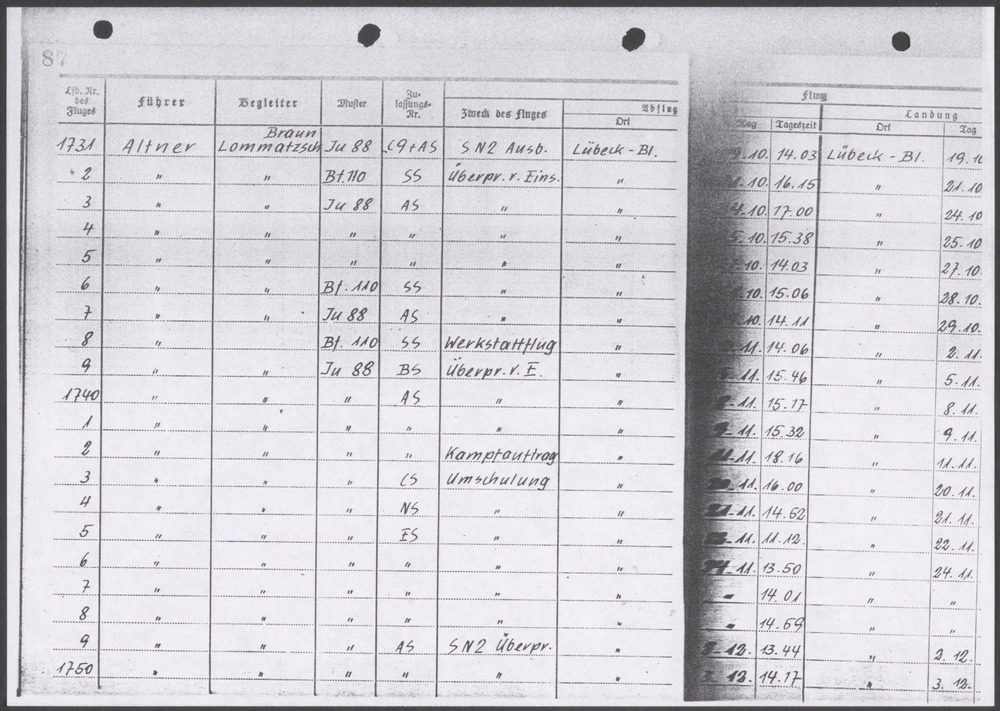 87
Lfd. Nr. des Fluges Führer Begleiter Muster Zu-lassungs-Nr. Zweck des Fluges Abflug Ort Tag Tageszeit Flug Landung Ort Tag
Braun
1731 Altner Lommatzsch Ju 88 C9+AS SN2 Ausb. Lübeck-Bl. 9.10. 14.03 Lübeck-Bl. 19.10
2 " " Bf.110 SS Überpr. v. Eins. " 1.10. 16.15 " 21.10
3 " " Ju 88 AS " " 4.10. 17.00 " 24.10
4 " " " " " " 5.10. 15.38 " 25.10
5 " " " " " " 10. 14.03 " 27.10.
6 " " Bf. 110 SS " " 10. 15.06 " 28.10.
7 " " Ju 88 AS " " 10. 14.11 " 29.10.
8 " " Bf. 110 SS Werkstattflug " 11. 14.06 " 2.11.
9 " " Ju 88 BS Überpr. v. E. " 11. 15.46 " 5.11.
1740 " " " AS " " 11. 15.17 " 8.11.
1 " " " " " " 9.11. 15.32 " 9.11.
2 " " " " Kampfauftrag " 11.11. 18.16 " 11.11.
3 " " " CS Umschulung " 20.11. 16.00 " 20.11.
4 " " " NS " " 21.11. 14.52 " 21.11.
5 " " " ES " " 11. 11.12. " 22.11.
6 " " " " " " 24.11. 13.50 " 24.11.
7 " " " " " " " 14.01 " "
8 " " " " " " " 14.59 " "
9 " " " AS SN2 Überpr. " 2.12. 13.44 " 2.12.
1750 " " " " " " 3.12. 14.17 " 3.12.